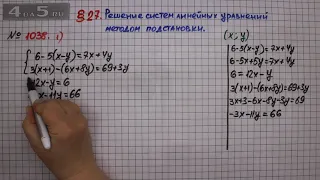 4DA5
§27. Решение систем линейных уравнений
методом подстановки.
№ 1038. 1)
(x; y)
6-5(x-y)=7x+4y
3(x+1)-(6x+8y)=69+3y
12x-y=6
x-11y=66
6-5(x-y)=7x+4y
6-5x+5y=7x+4y
6=12x-y
3(x+1)-(6x+8y)=69+3y
3x+3-6x-8y-3y=69
-3x-11y=66